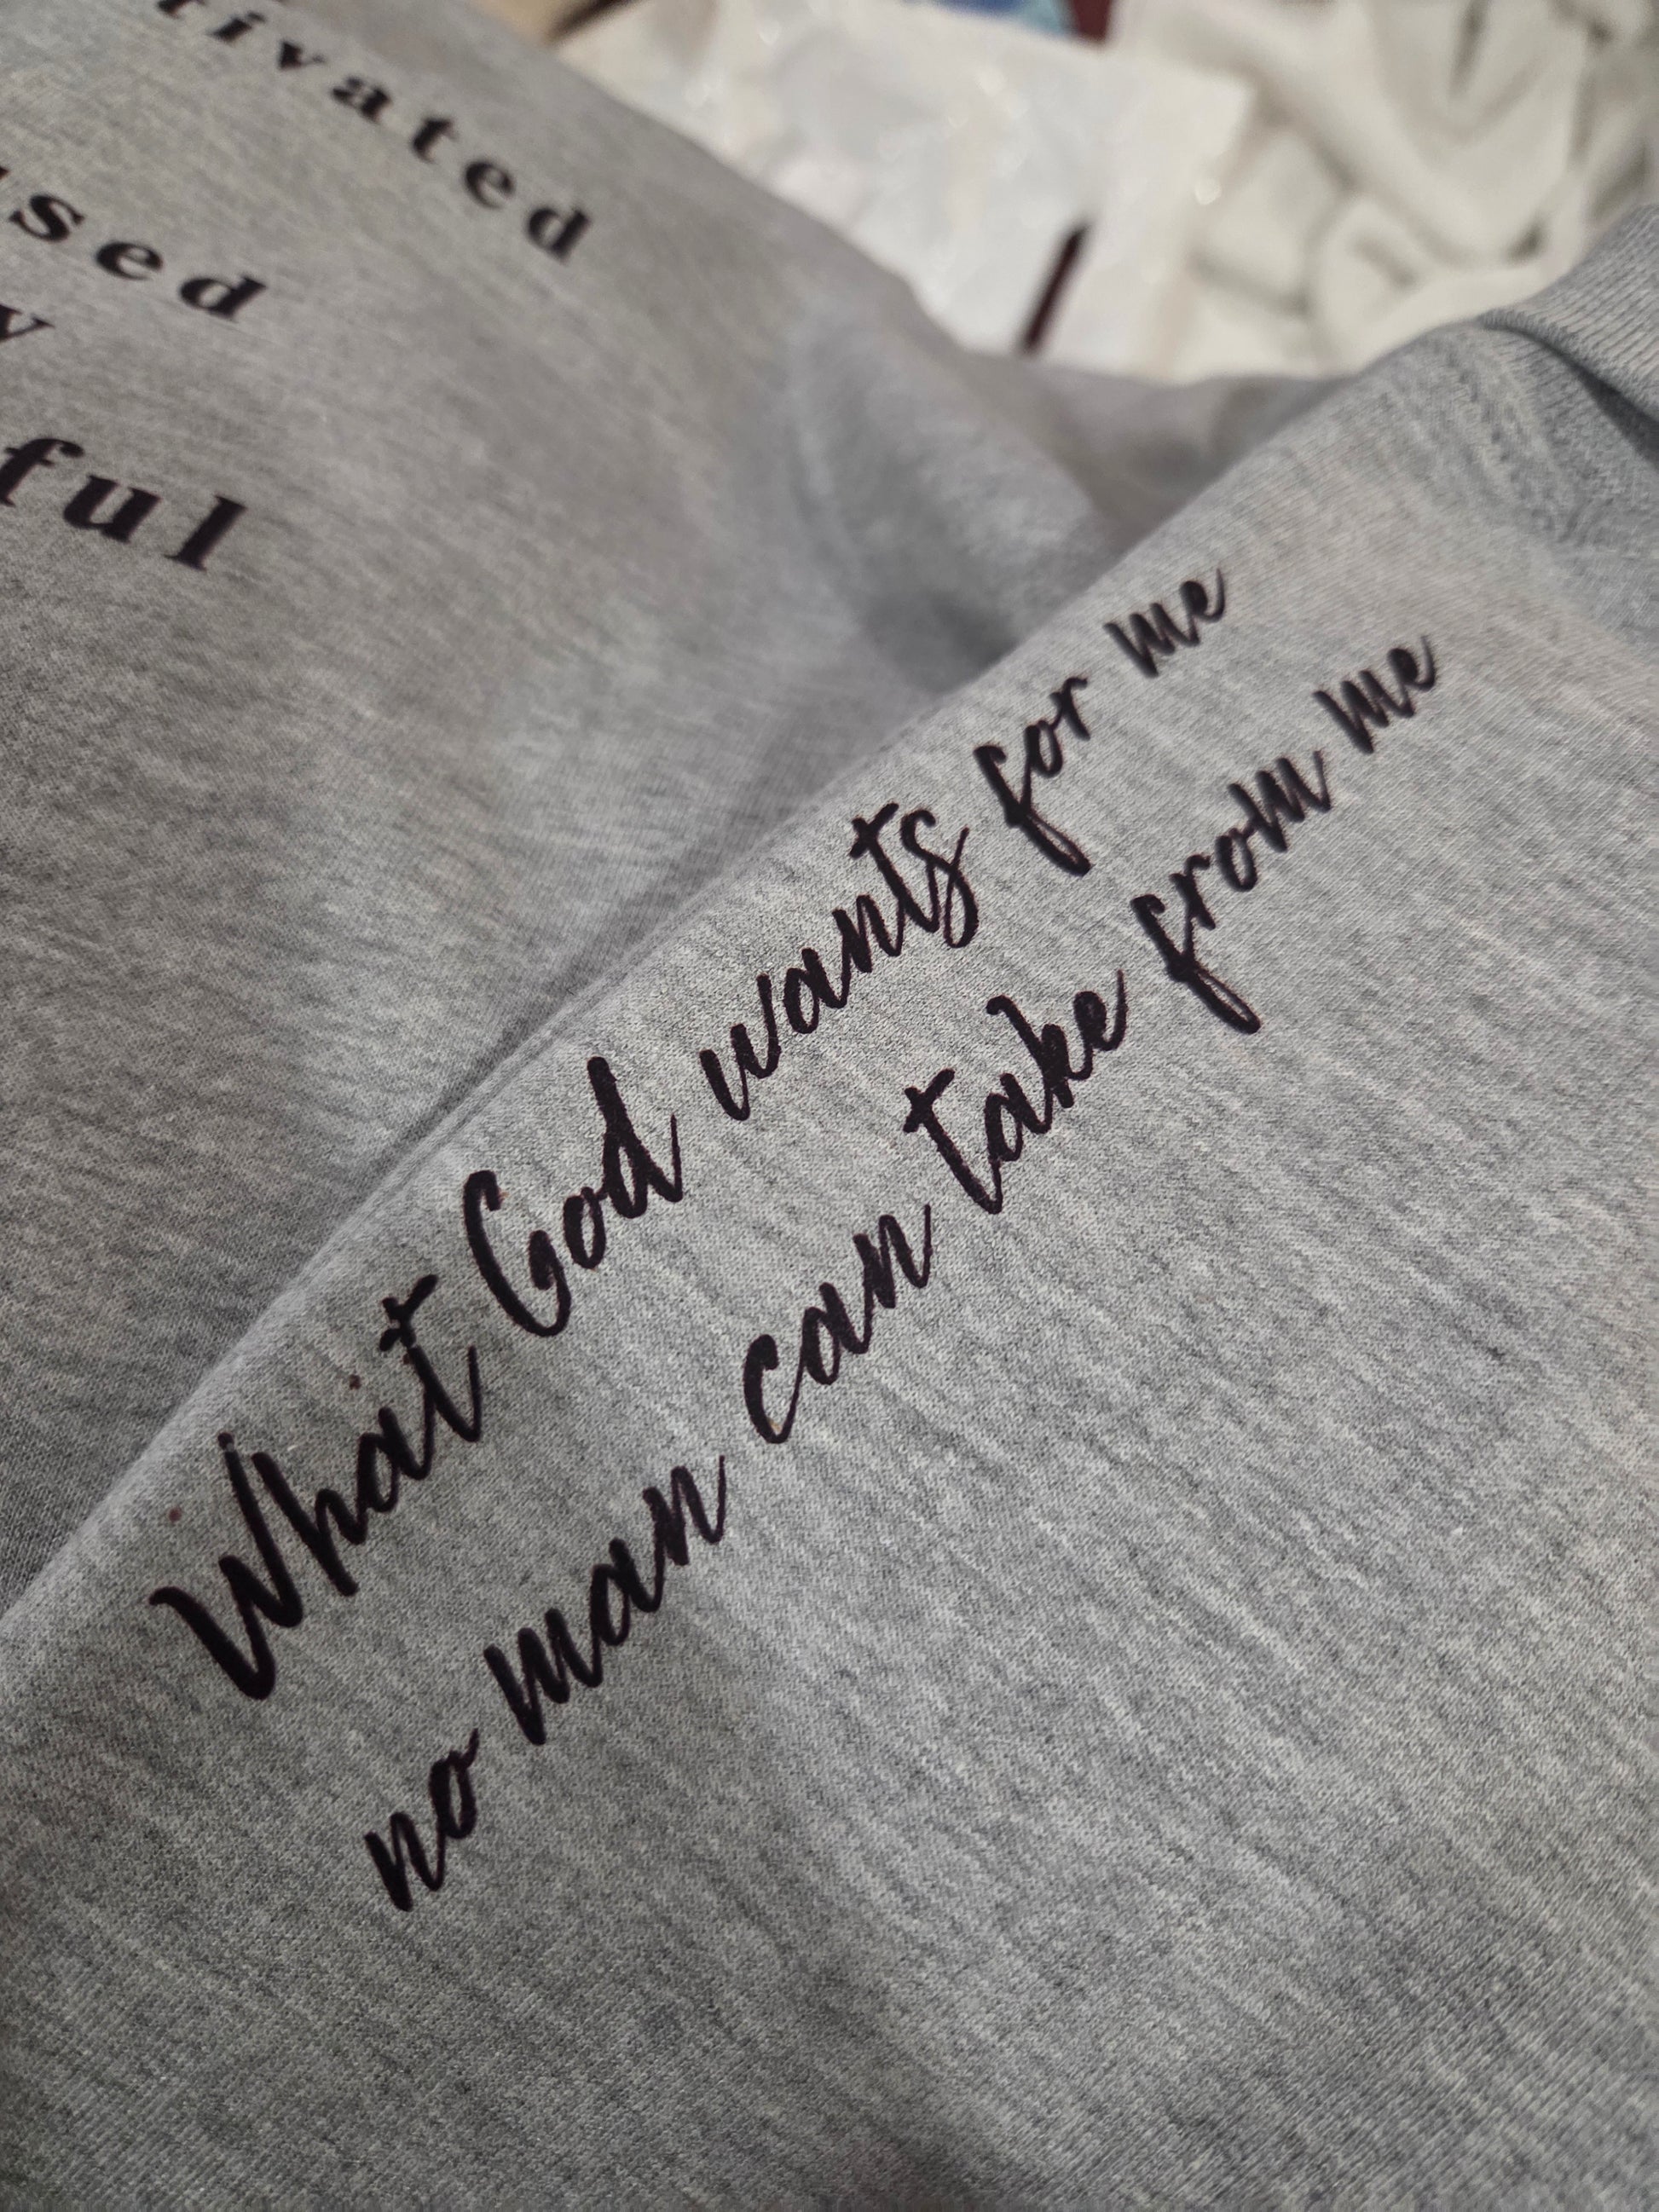 tivated
used
y
ful
What God wants for me
no man can take from me